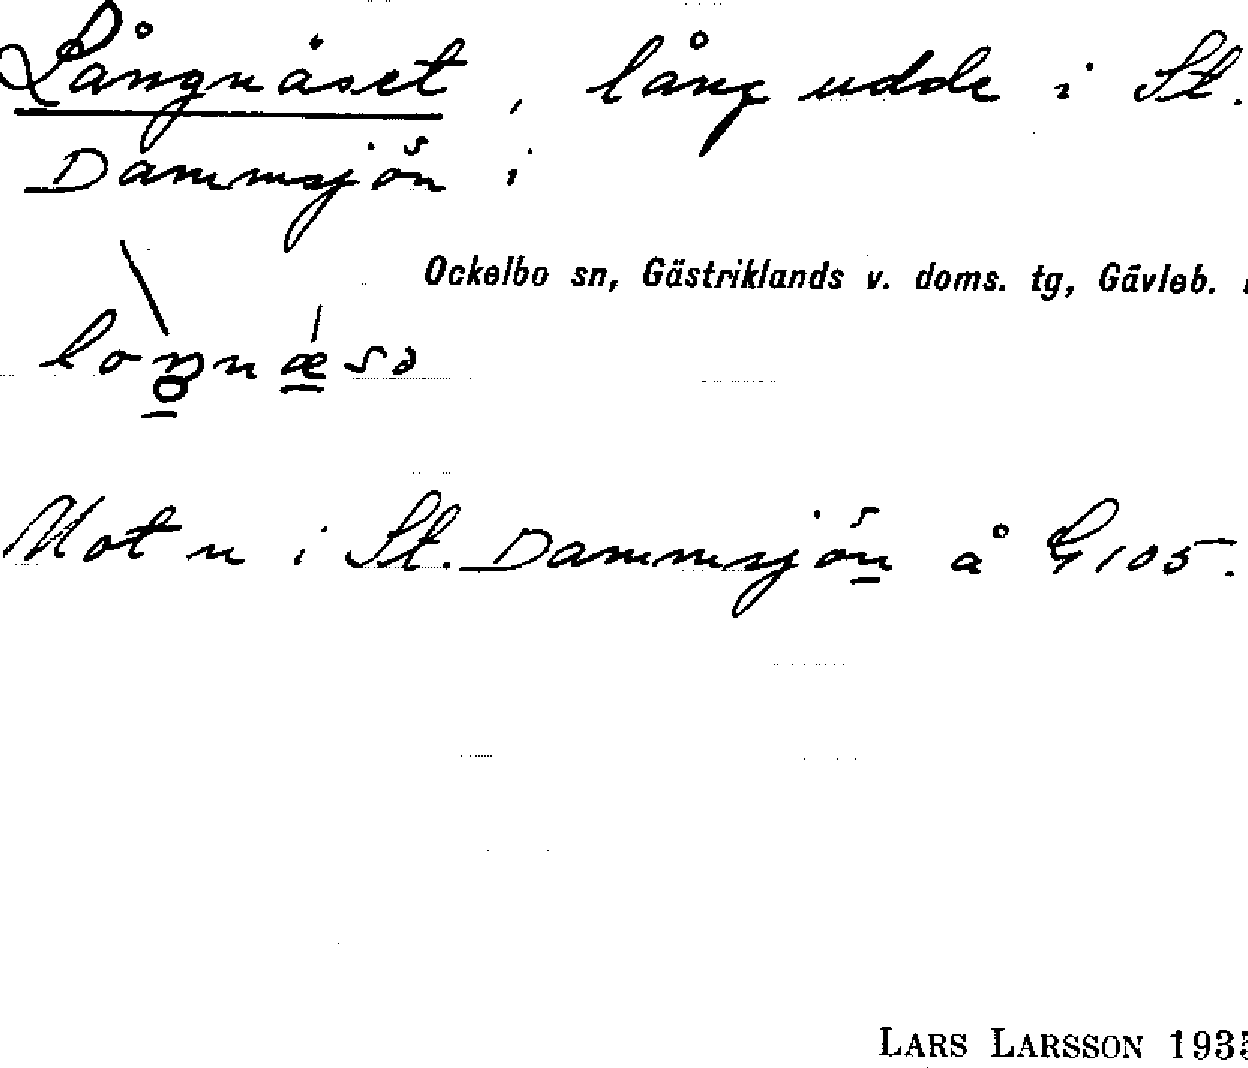 Långnäset, lång udde i St.
Dammsjön i
Ockelbo sn, Gästriklands v. doms. tg, Gävleb.
Mot n i St. Dammsjön å G 105.
LARS LARSSON 1935